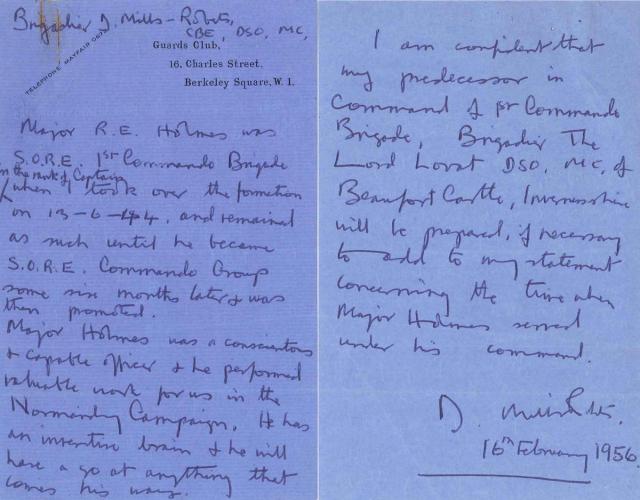 Brigadier D. Mills-Roberts,
CBE, DSO, MC,
TELEPHONE MAYFAIR
Guards Club,
16, Charles Street,
Berkeley Square, W. 1.
Major R.E. Holmes was
S.O.R.E. 1st Commando Brigade
in the rank of Captain
when I took over the formation
on 13-6-44, and remained
as such until he became
S.O.R.E. Commando Group
some six months later & was
then promoted.
Major Holmes was a conscientious
& capable officer & he performed
valuable work for us in the
Normandy Campaign. He has
an inventive brain & he will
have a go at anything that
comes his way.
I am confident that
my predecessor in
Command of 1st Commando
Brigade, Brigadier The
Lord Lovat DSO, MC, of
Beaufort Castle, Invernesshire
will be prepared, if necessary
to add to my statement
concerning the time when
Major Holmes served
under his command.
D. Mills-Roberts.
16th February 1956